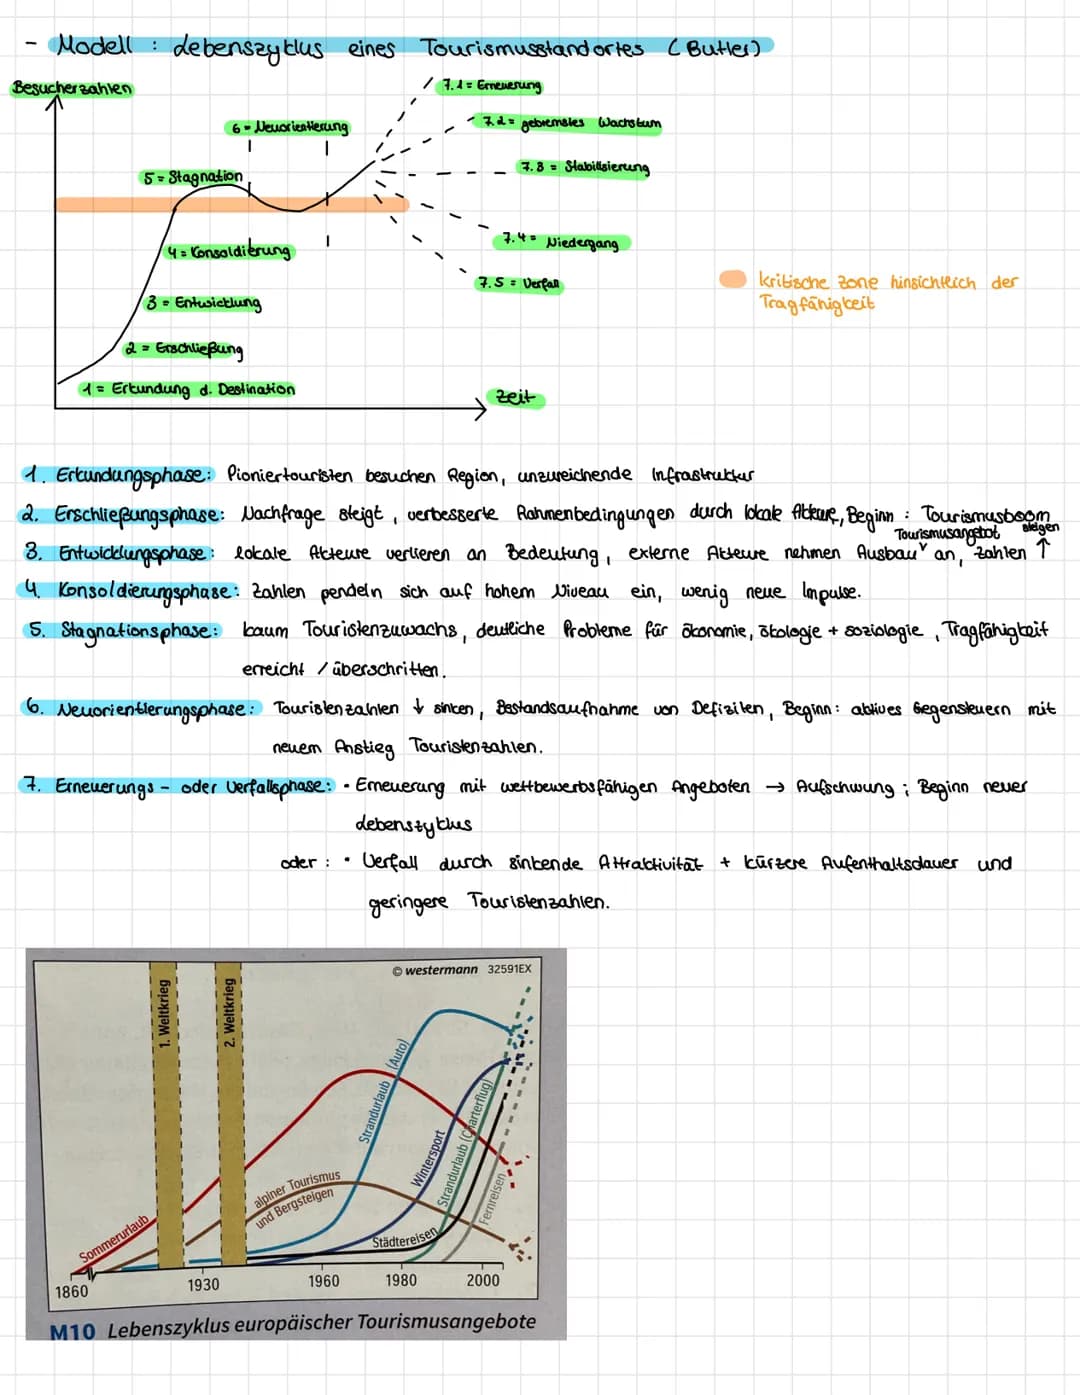 - Modell : Lebenszyklus eines Tourismusstandortes (Butler)
Besucherzahlen
7.1 = Erneuerung
7.2 = gebremstes Wachstum
6 = Neuorientierung
7.3 = Stabilisierung
5 = Stagnation
7.4 = Niedergang
4 = Konsoldierung
7.5 = Verfall
kritische Zone hinsichtlich der
Tragfähigkeit
3 = Entwicklung
2 = Erschließung
1 = Erkundung d. Destination
Zeit
1. Erkundungsphase: Pioniertouristen besuchen Region, unzureichende Infrastruktur
2. Erschließungsphase: Nachfrage steigt, verbesserte Rahmenbedingungen durch lokale Akteure, Beginn : Tourismusboom
Tourismusangebot steigen
3. Entwicklungsphase: lokale Akteure verlieren an Bedeutung, externe Akteure nehmen Ausbau v an, Zahlen ↑
4. Konsoldierungsphase: Zahlen pendeln sich auf hohem Niveau ein, wenig neue Impulse.
5. Stagnationsphase: kaum Touristenzuwachs, deutliche Probleme für Ökonomie, Ökologie + Soziologie, Tragfähigkeit
erreicht / überschritten.
6. Neuorientierungsphase: Touristenzahlen ↓ sinken, Bestandsaufnahme von Defiziten, Beginn: aktives Gegensteuern mit
neuem Anstieg Touristenzahlen.
7. Erneuerungs - oder Verfallsphase: • Erneuerung mit wettbewerbsfähigen Angeboten → Aufschwung ; Beginn neuer
Lebenszyklus
oder : • Verfall durch sinkende Attraktivität + kürzere Aufenthaltsdauer und
geringere Touristenzahlen.
© westermann 32591EX
1. Weltkrieg
2. Weltkrieg
Strandurlaub (Auto)
Wintersport
Strandurlaub (Charterflug)
alpiner Tourismus
und Bergsteigen
Fernreisen
Sommerurlaub
Städtereisen
1860
1930
1960
1980
2000
M10 Lebenszyklus europäischer Tourismusangebote